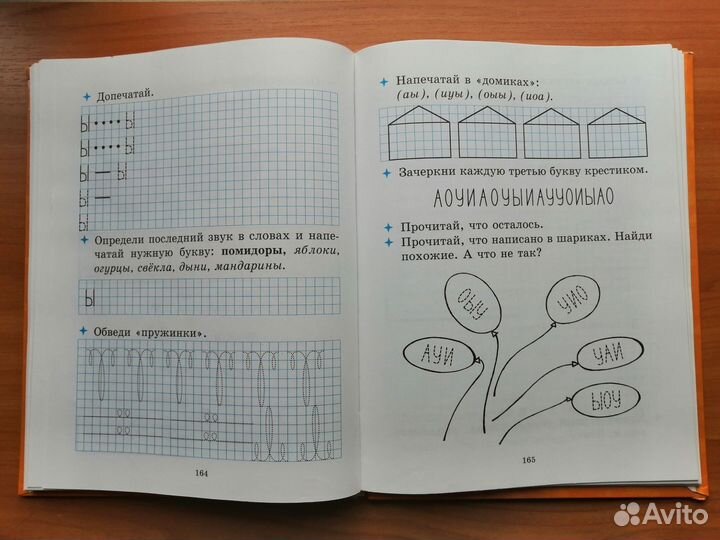 Допечатай.
Ы •••• Ы
Ы •••• Ы
Ы — Ы
Ы —
Ы
Определи последний звук в словах и напе-
чатай нужную букву: помидоры, яблоки,
огурцы, свёкла, дыни, мандарины.
Ы
Обведи «пружинки».
164
Напечатай в «домиках»:
(аы), (иуы), (оыы), (иоа).
Зачеркни каждую третью букву крестиком.
АОУИАОУЫИАУУОИЫАО
Прочитай, что осталось.
Прочитай, что написано в шариках. Найди
похожие. А что не так?
ОЫУ
УИО
АУИ
УАИ
ЫОУ
165
Avito